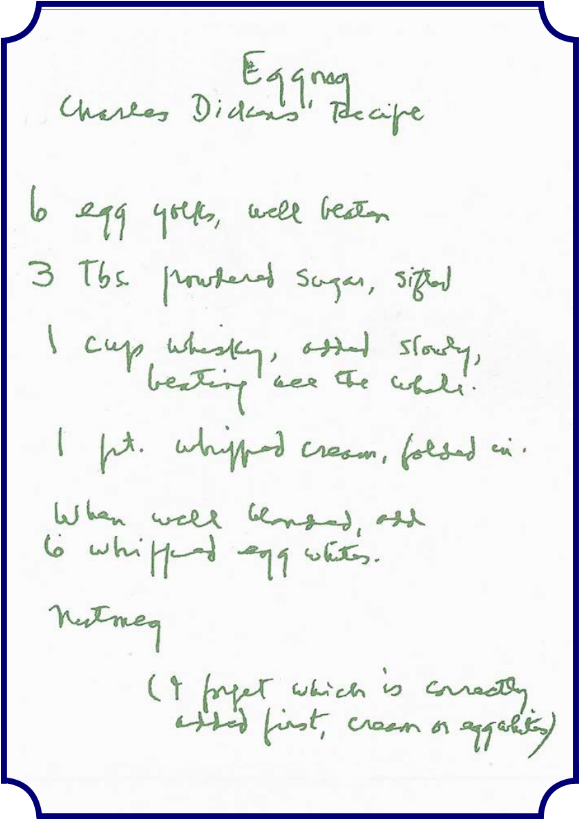 Eggnog
Charles Dickens' Recipe
6 egg yolks, well beaten
3 Tbs. powdered sugar, sifted
1 cup whisky, added slowly,
beating all the while.
1 pt. whipped cream, folded in.
When well blended, add
6 whipped egg whites.
Nutmeg
(I forget which is correctly
added first, cream or egg whites)